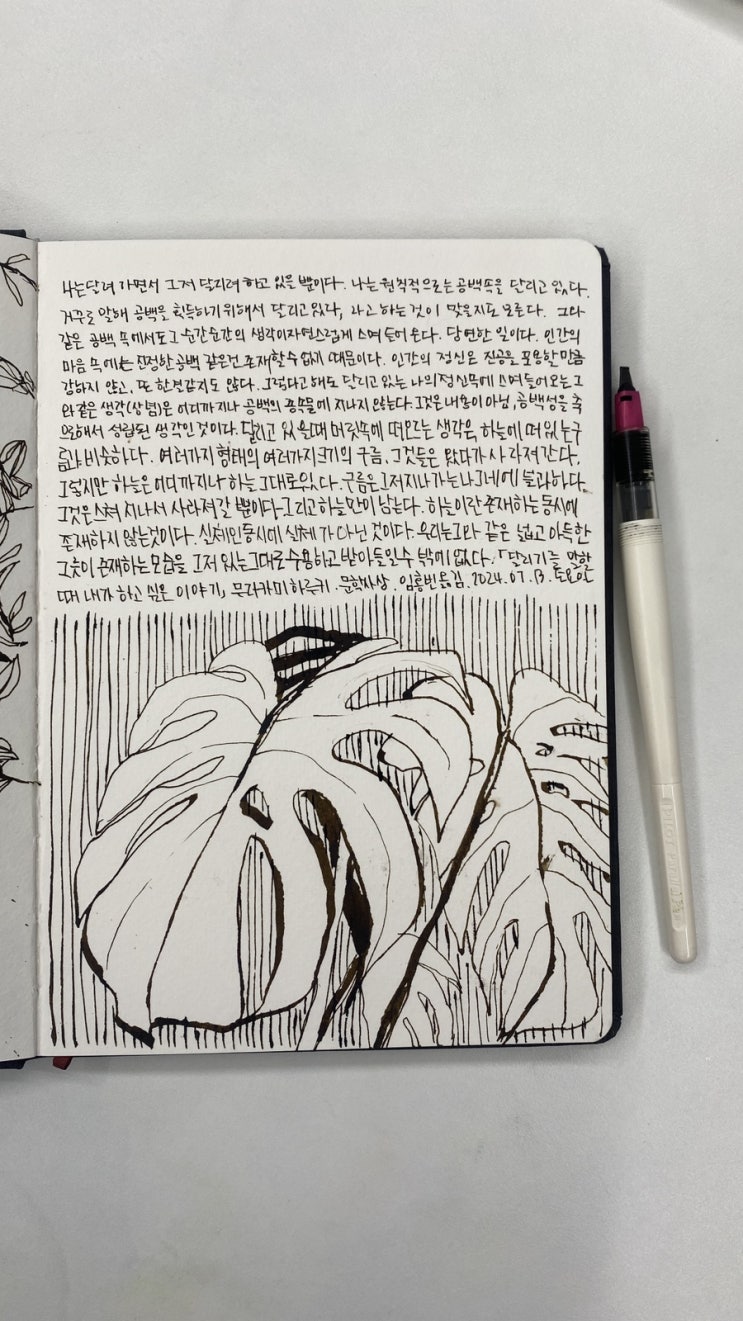 나는 달려 가면서 그저 달리려 하고 있을 뿐이다. 나는 원칙적으로는 공백속을 달리고 있다.
거꾸로 말해 공백을 획득하기 위해서 달리고 있다, 라고 하는 것이 맞을지도 모른다. 그와
같은 공백 속에서도 그 순간순간의 생각이 자연스럽게 스며 들어 온다. 당연한 일이다. 인간의
마음 속에는 진정한 공백 같은건 존재할 수 없기 때문이다. 인간의 정신은 진공을 포용할 만큼
강하지 않고, 또 한결같지도 않다. 그렇다고 해도 달리고 있는 나의 정신 속에 스며 들어오는 그
와 같은 생각(상념)은 어디까지나 공백의 종속물에 지나지 않는다. 그것은 내용이 아닌, 공백성을 축
으로해서 성립된 생각인 것이다. 달리고 있을 때 머릿속에 떠오르는 생각은 하늘에 떠 있는 구
름과 비슷하다. 여러가지 형태의 여러가지 크기의 구름. 그것들은 왔다가 사라져 간다.
그렇지만 하늘은 어디까지나 하늘 그대로 있다. 구름은 그저 지나가는 나그네에 불과하다.
그것은 스쳐 지나서 사라져 갈 뿐이다. 그리고 하늘만이 남는다. 하늘이란 존재하는 동시에
존재하지 않는 것이다. 실체인 동시에 실체가 아닌 것이다. 우리는 그와 같은 넓고 아득한
그릇이 존재하는 모습을 그저 있는 그대로 수용하고 받아들일 수 밖에 없다. 「달리기를 말할
때 내가 하고 싶은 이야기, 무라카미 하루키. 문학사상. 임홍빈 옮김. 2024. 07. 13. 토요일
PILOT